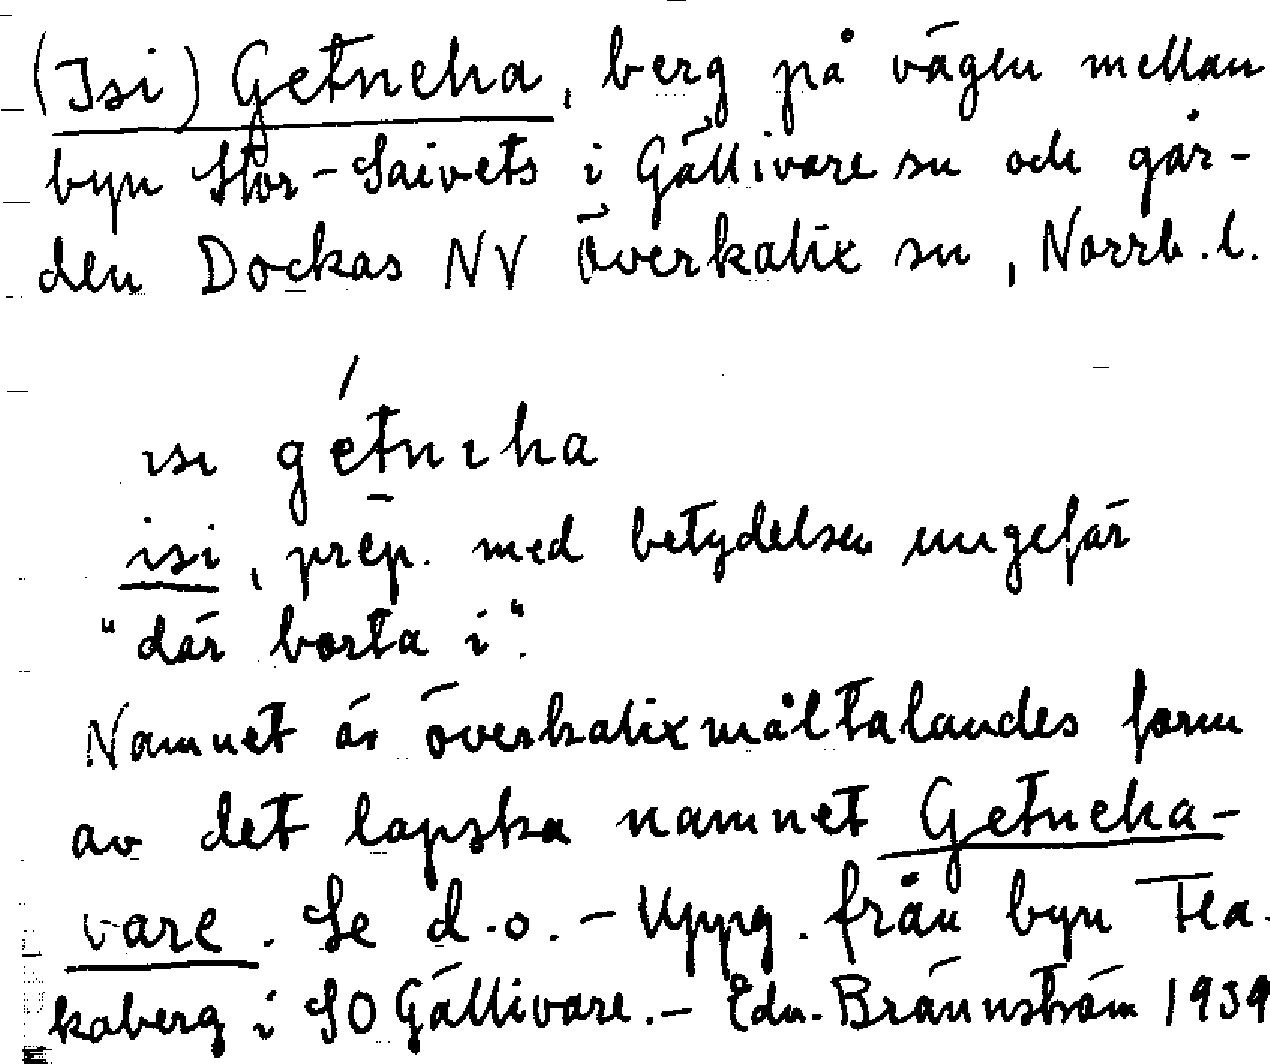 (Isi) Getneha, berg på vägen mellan
byn Stor-Saivets i Gällivare sn och går-
den Dockas NV Överkalix sn, Norrb. l.
ısı gétnıha
isi, prep. med betydelsen ungefär
"där borta i".
Namnet är överkalixmåltalandes form
av det lapska namnet Getneha-
vare. Se d.o. - Uppg. från byn Tea-
kaberg i SO Gällivare. - Edv. Brännström 1939